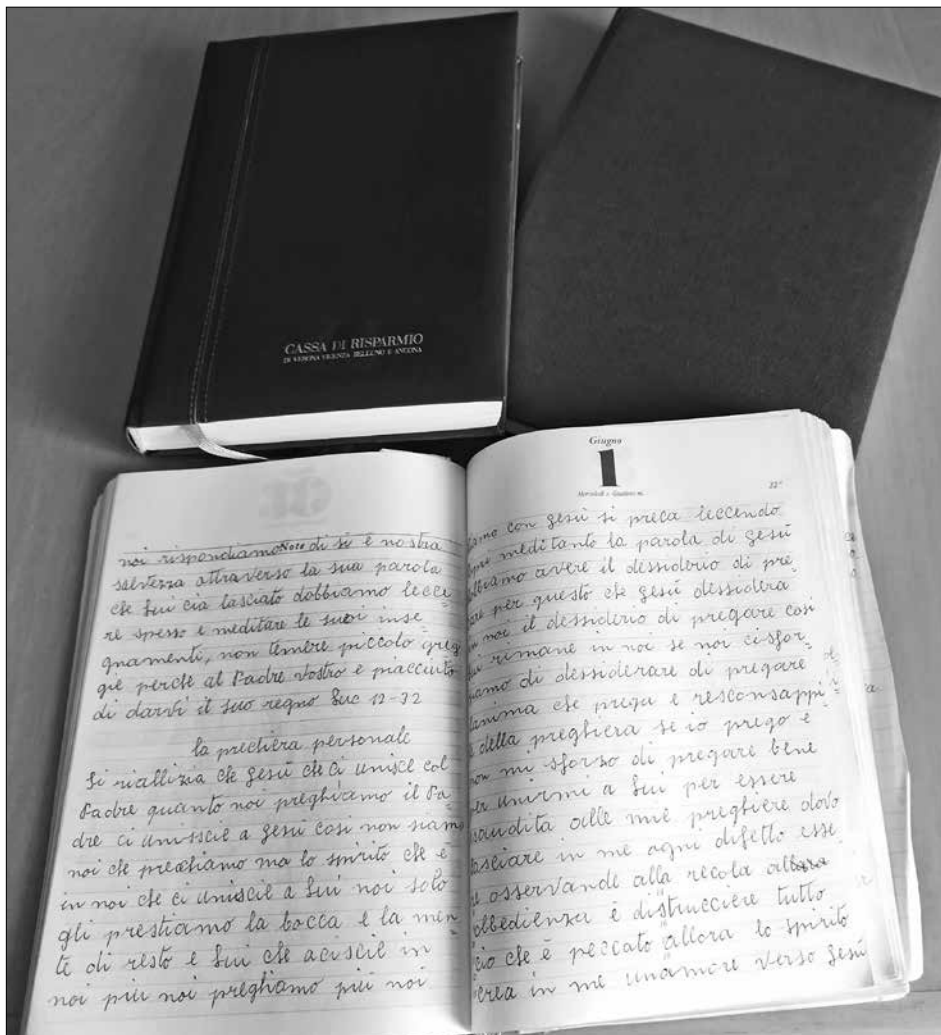 CASSA DI RISPARMIO
DI VERONA VICENZA BELLUNO E ANCONA
Note
noi rispondiamo di si è nostra
salvezza attraverso la sua parola
che Lui cia lasciato dobbiamo lecce-
re spesso e meditare le suoi inse-
gnamenti, non temere piccolo greg-
gie perche al Padre vostro e piacciuto
di darvi il suo regno Luc 12-32
la prechiera personale
Si riallizia che gesù che ci unisce col
Padre quanto noi preghiamo il Pa-
dre ci unisscie a gesù cosi non siamo
noi che prechiamo ma lo spirito che è
in noi che ci uniscie a Lui noi solo
gli prestiamo la bocca e la men-
te di resto e Lui che aciscie in
noi più noi preghiamo più noi
Giugno
1
siamo con gesù si preca leccendo
ogni meditanto la parola di gesù
dobbiamo avere il dessiderio di pre-
per questo che gesù dessidera
in noi il dessiderio di pregare cosi
lui rimane in noi se noi ci sfor-
ziamo di dessiderare di pregare
lanima che prega e resconsappi-
della preghiera se io prego e
non mi sforso di pregare bene
per unirmi a Lui per essere
esaudita alle mie preghiere dovo
lasciare in me ogni difetto esse
osservande alla recola
obbedienza è distrucciere tutto
ciò che è peccato allora lo spirito
crea in me unamore verso gesù